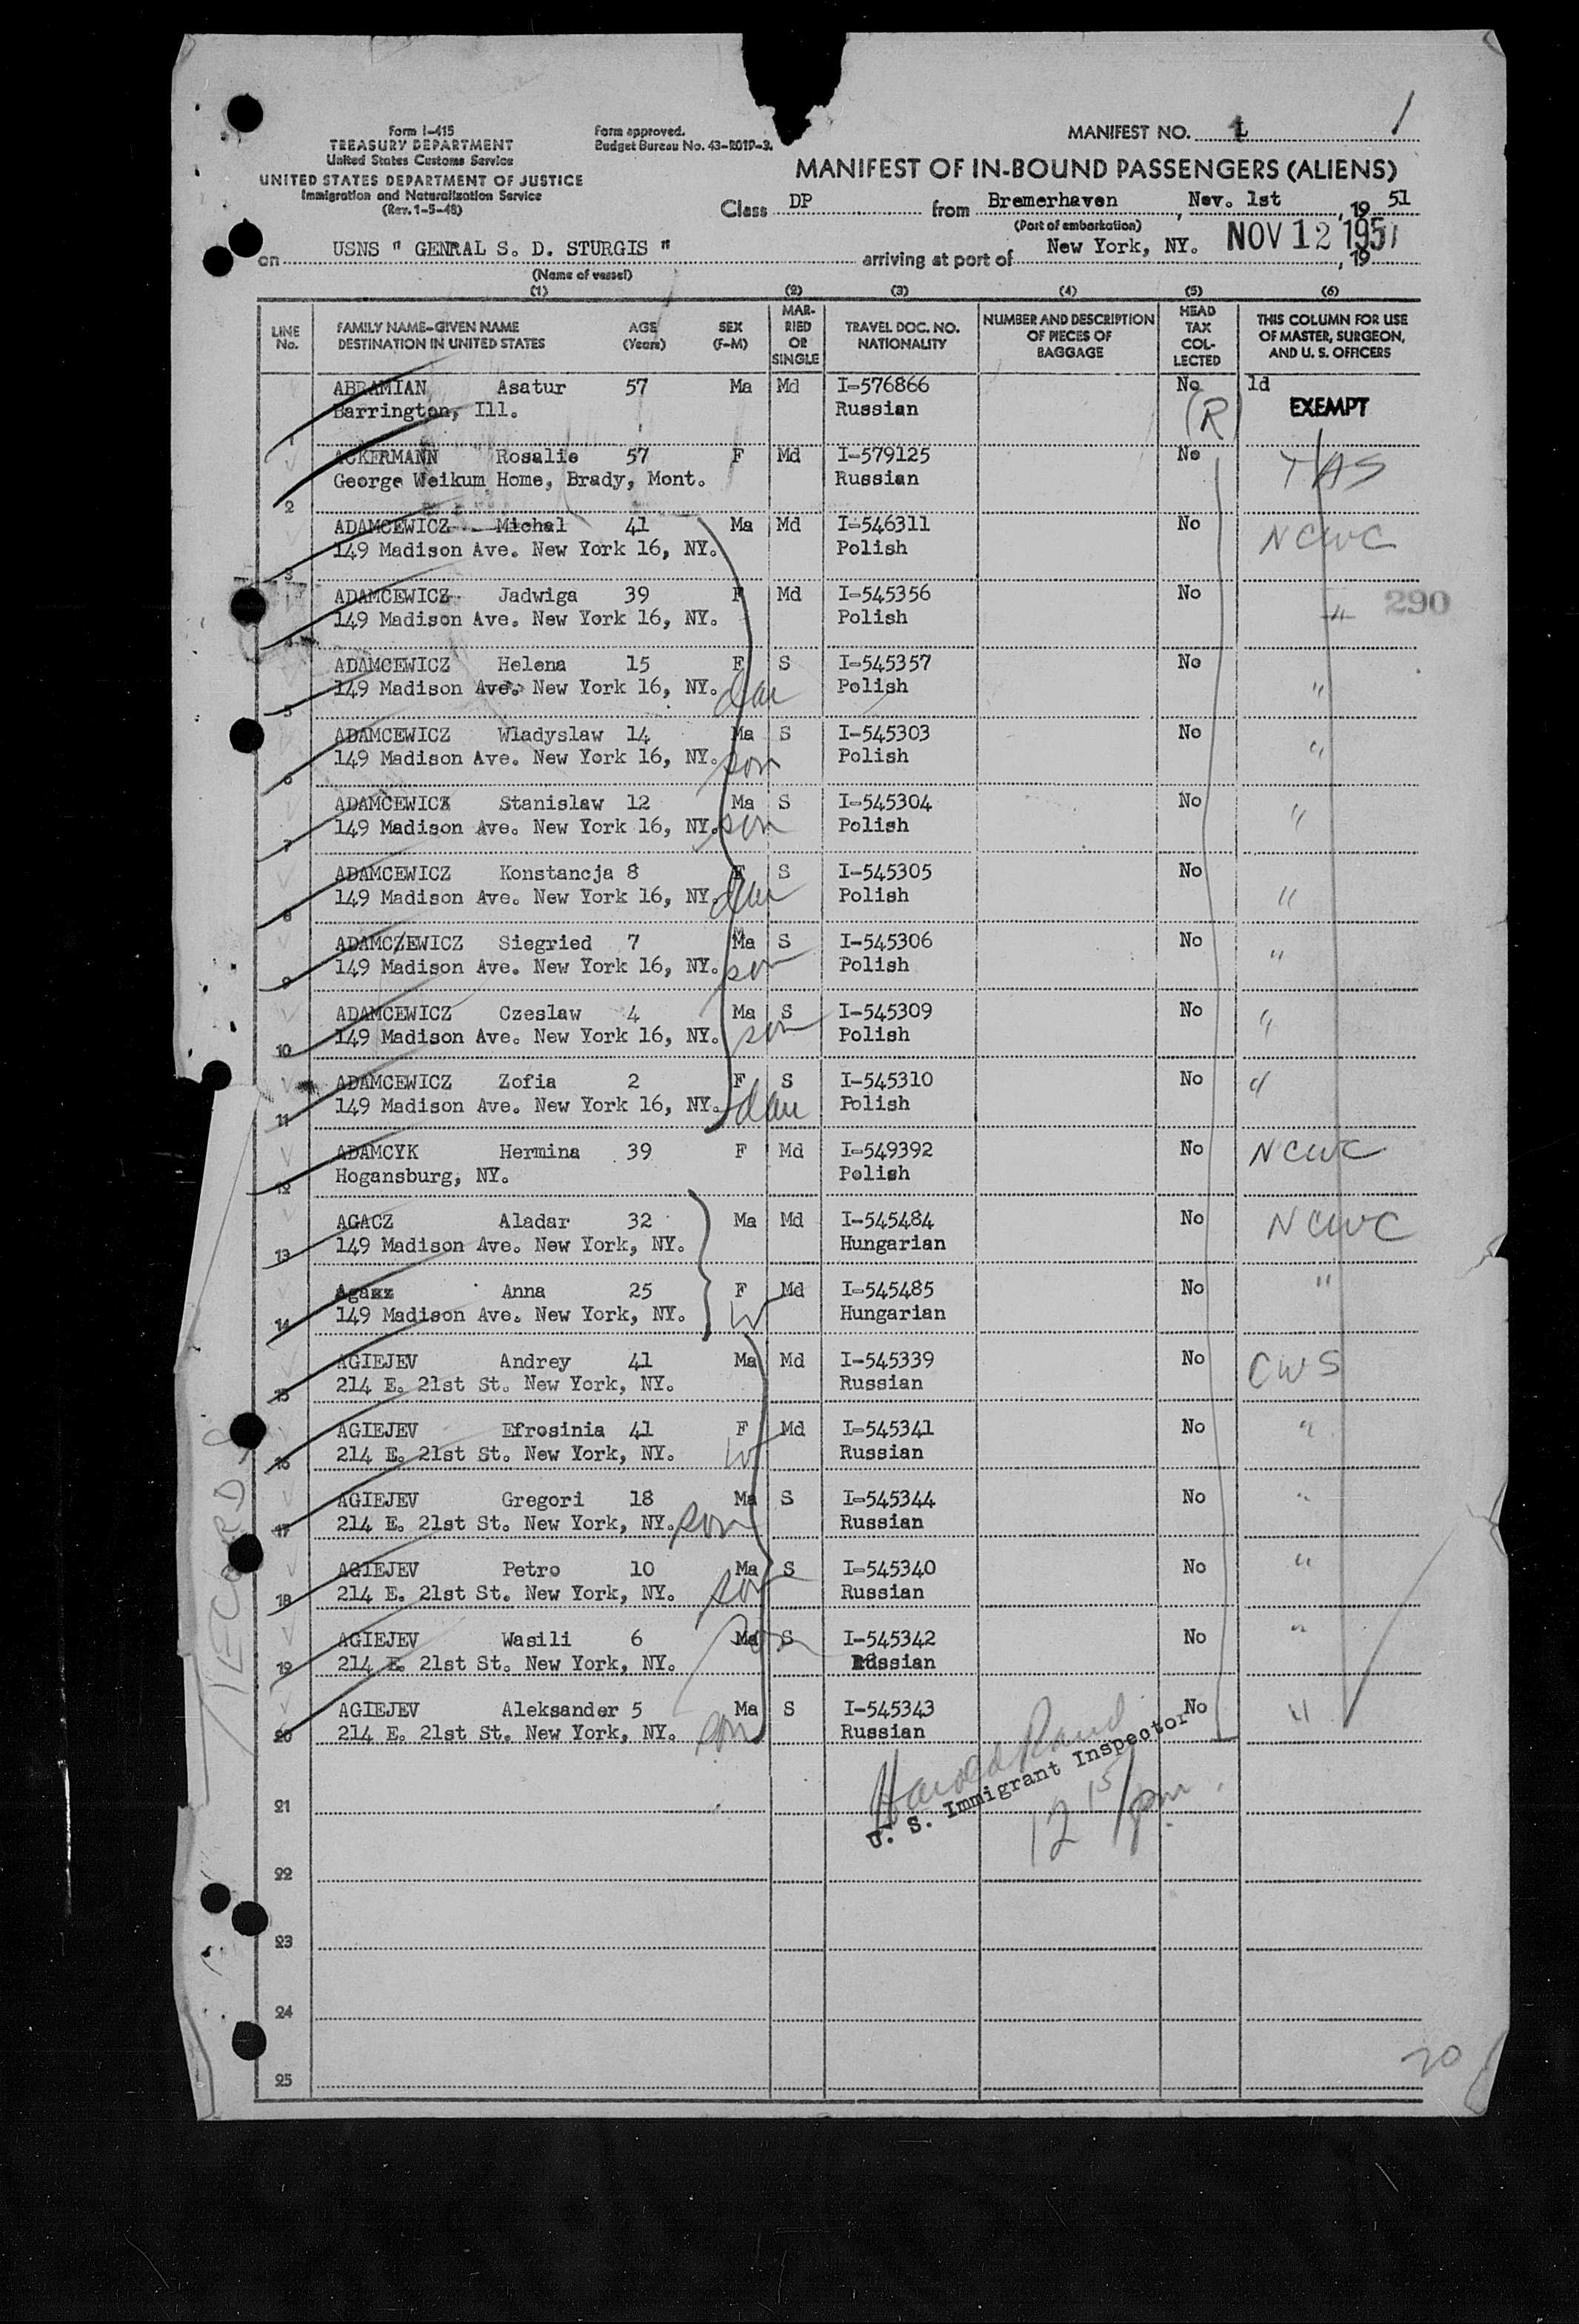 1
Form I-415
TREASURY DEPARTMENT
United States Customs Service
UNITED STATES DEPARTMENT OF JUSTICE
Immigration and Naturalization Service
(Rev. 1-5-48)
Form approved.
Budget Bureau No. 43-R019-3.
MANIFEST NO. 1
MANIFEST OF IN-BOUND PASSENGERS (ALIENS)
Class DP from Bremerhaven, Nov. 1st, 19 51
(Port of embarkation)
on USNS " GENRAL S. D. STURGIS " arriving at port of New York, NY. NOV 12 1951, 19
(Name of vessel)
(1) (2) (3) (4) (5) (6)
LINE No. FAMILY NAME-GIVEN NAME DESTINATION IN UNITED STATES AGE (Years) SEX (F-M) MARRIED OR SINGLE TRAVEL DOC. NO. NATIONALITY NUMBER AND DESCRIPTION OF PIECES OF BAGGAGE HEAD TAX COLLECTED THIS COLUMN FOR USE OF MASTER, SURGEON, AND U. S. OFFICERS
ABRAMIAN Asatur 57 Ma Md I-576866 No 1d
1 Barrington, Ill. Russian (R) EXEMPT
ACKERMANN Rosalie 57 F Md I-579125 No
2 George Weikum Home, Brady, Mont. Russian
ADAMCEWICZ Michal 41 Ma Md I-546311 No NCWC
3 149 Madison Ave. New York 16, NY. Polish
ADAMCEWICZ Jadwiga 39 F Md I-545356 No " 290
4 149 Madison Ave. New York 16, NY. Polish
ADAMCEWICZ Helena 15 F S I-545357 No
5 149 Madison Ave. New York 16, NY. dau Polish "
ADAMCEWICZ Wladyslaw 14 Ma S I-545303 No
6 149 Madison Ave. New York 16, NY. son Polish "
ADAMCEWICZ Stanislaw 12 Ma S I-545304 No
7 149 Madison Ave. New York 16, NY. son Polish "
ADAMCEWICZ Konstancja 8 F S I-545305 No
8 149 Madison Ave. New York 16, NY. dau Polish "
ADAMCZEWICZ Siegried 7 Ma S I-545306 No
9 149 Madison Ave. New York 16, NY. son Polish "
ADAMCEWICZ Czeslaw 4 Ma S I-545309 No
10 149 Madison Ave. New York 16, NY. son Polish "
ADAMCEWICZ Zofia 2 F S I-545310 No "
11 149 Madison Ave. New York 16, NY. dau Polish
ADAMCYK Hermina 39 F Md I-549392 No NCWC
12 Hogansburg, NY. Polish
AGACZ Aladar 32 Ma Md I-545484 No NCWC
13 149 Madison Ave. New York, NY. Hungarian
Agacz Anna 25 F Md I-545485 No "
14 149 Madison Ave. New York, NY. W Hungarian
AGIEJEV Andrey 41 Ma Md I-545339 No CWS
15 214 E. 21st St. New York, NY. Russian
AGIEJEV Efrosinia 41 F Md I-545341 No "
16 214 E. 21st St. New York, NY. W Russian
AGIEJEV Gregori 18 Ma S I-545344 No "
17 214 E. 21st St. New York, NY. son Russian
AGIEJEV Petro 10 Ma S I-545340 No "
18 214 E. 21st St. New York, NY. son Russian
AGIEJEV Wasili 6 Ma S I-545342 No "
19 214 E. 21st St. New York, NY. son Russian
AGIEJEV Aleksander 5 Ma S I-545343 No "
20 214 E. 21st St. New York, NY. son Russian
Harold
U. S. Immigrant Inspector
12 15 pm
21
22
23
24
25
20
RECORDS